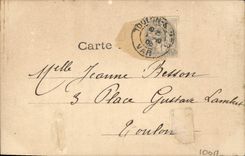 TOULON
VAR
Carte
Melle Jeanne Besson
3 Place Gustave Lambert
Toulon